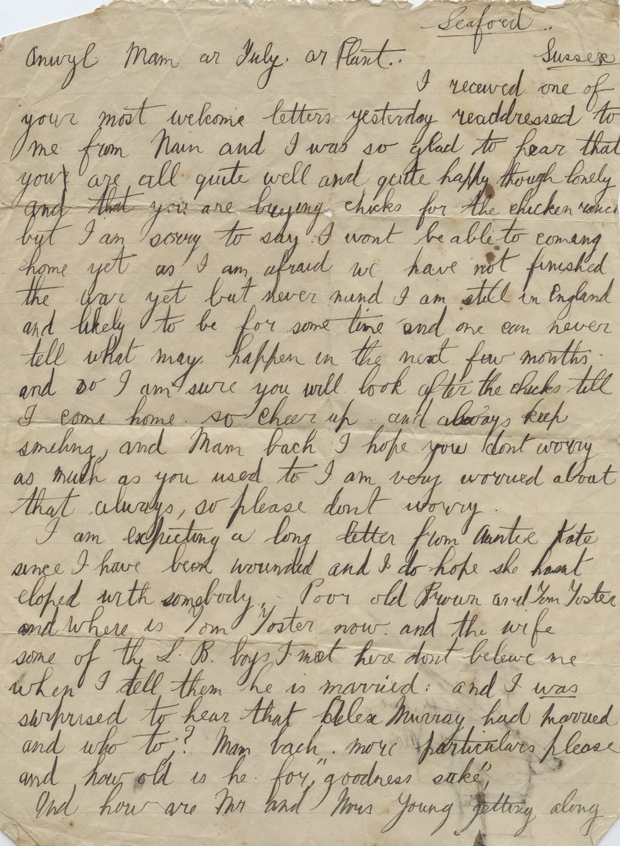 Seaford.
Sussex
Anwyl Mam ar Tuly. ar Plant..
I received one of
your most welcome letters yesterday readdressed to
me from Nain and I was so glad to hear that
your are all quite well and quite happy though lonely
and that you are buying chicks for the chicken ranch
but I am sorry to say I wont be able to coming
home yet as I am afraid we have not finished
the war yet but never mind I am still in England
and likely to be for some time and one can never
tell what may happen in the next few months.
and so I am sure you will look after the chicks till
I come home. so cheer up and always keep
smeling, and Mam bach I hope you dont worry
as much as you used to I am very worried about
that always, so please dont worry.
I am expecting a long letter from Auntie Kate
since I have been wounded and I do hope she hasnt
eloped with somebody. Poor old Brown and Tom Foster
and where is Tom Foster now. and the wife
some of the S. R. boys I met here dont believe me
when I tell them he is married: and I was
surprised to hear that Alex Murray had married
and who to? Mam bach. more particulars please
and how old is he. for, "goodness sake",
And how are Mr and Mrs Young getting along